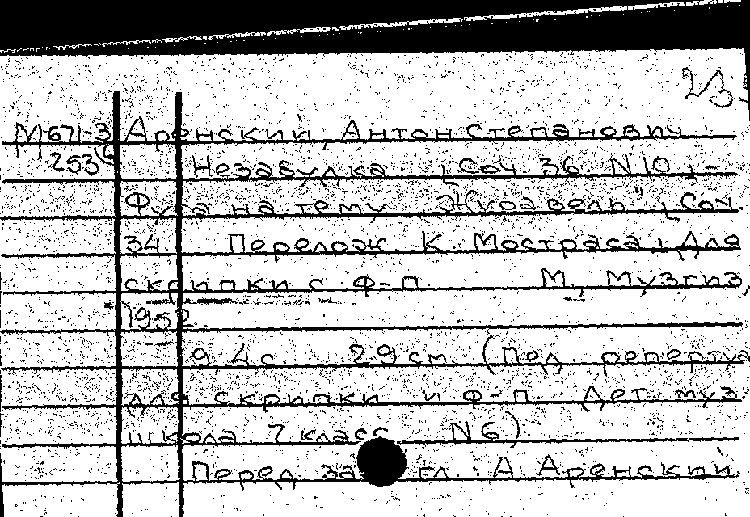 23
М 671-3 Аренский, Антон Степанович
253 Незабудка. [Соч. 36. N 10]. -
Фуга на тему "Журавель". [Соч.
34. Перелож. К. Мостраса]. Для
скрипки с ф-п. М., Музгиз,
1952.
9, 4 с. 29 см. (Пед. репертуа
для скрипки и ф-п. Дет. муз.
школа. 7 класс. N 6)
Перед загл.: А. Аренский